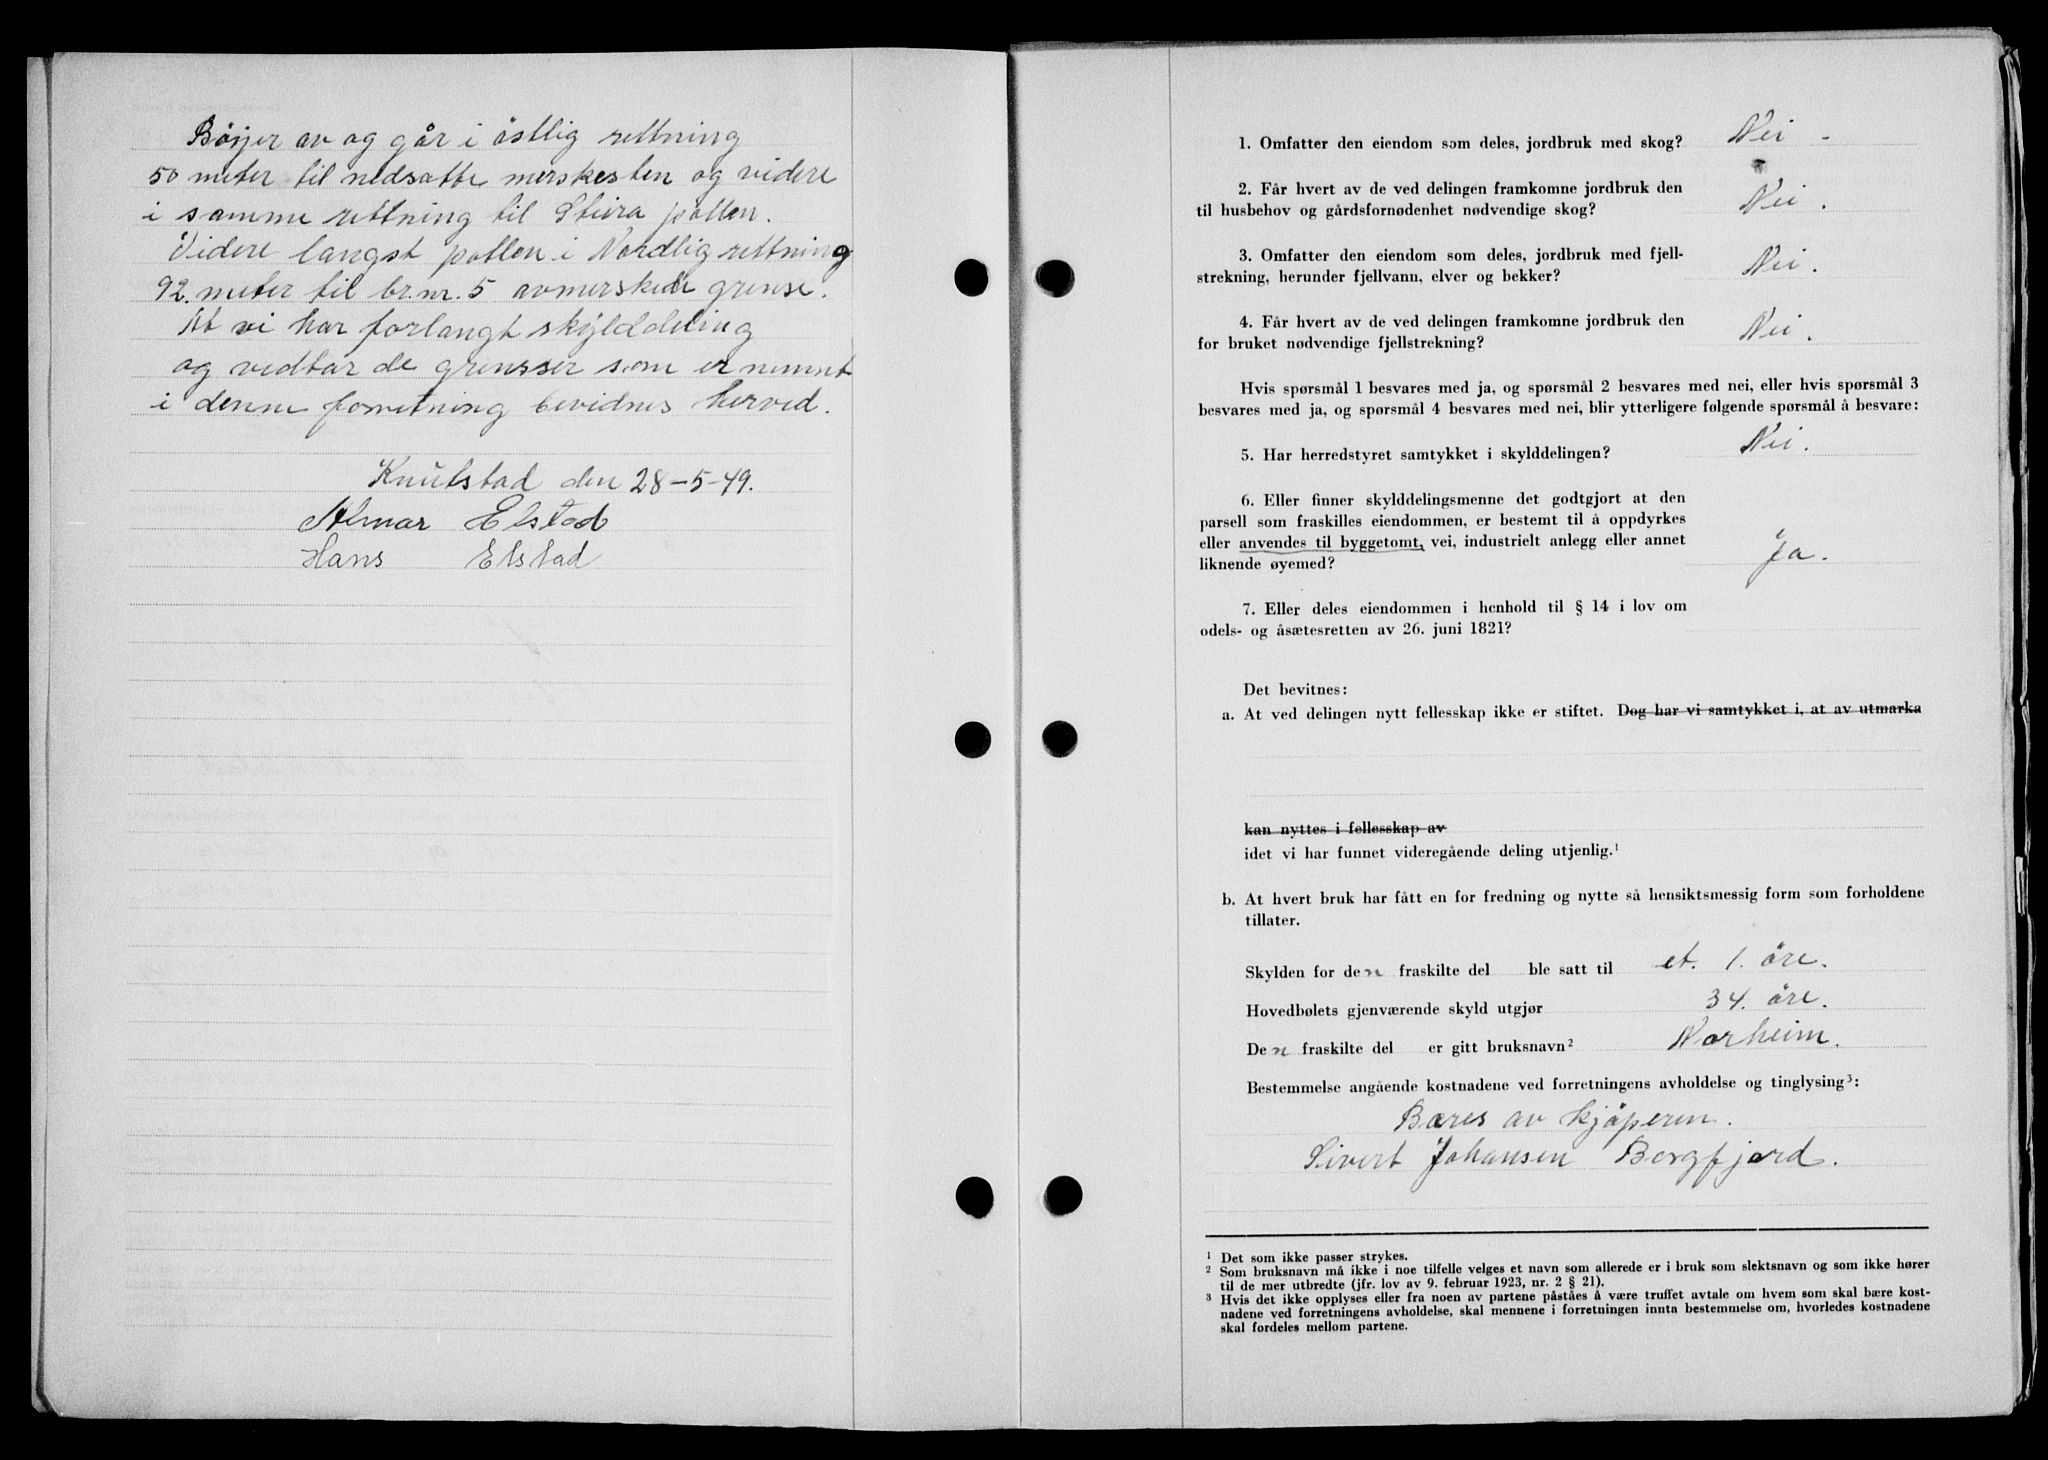 Bøyer av og går i östlig rettning
50 meter til nedsatte merskesten og videre
i samme rettning til Steira pollen.
Videre langst pollen i Nordlig rettning
92. meter til br.nr. 5 avmerskede grense.
At vi har forlangt skylddeling
og vedtar de grensser som er nemnt
i denne forretning bevidnes herved.
Knutstad den 28-5-49.
Almar Elstad
Hans Elstad
1. Omfatter den eiendom som deles, jordbruk med skog? Nei -
2. Får hvert av de ved delingen framkomne jordbruk den
til husbehov og gårdsfornødenhet nødvendige skog? Nei.
3. Omfatter den eiendom som deles, jordbruk med fjell-
strekning, herunder fjellvann, elver og bekker? Nei.
4. Får hvert av de ved delingen framkomne jordbruk den
for bruket nødvendige fjellstrekning? Nei.
Hvis spørsmål 1 besvares med ja, og spørsmål 2 besvares med nei, eller hvis spørsmål 3
besvares med ja, og spørsmål 4 besvares med nei, blir ytterligere følgende spørsmål å besvare:
5. Har herredstyret samtykket i skylddelingen? Nei.
6. Eller finner skylddelingsmenne det godtgjort at den
parsell som fraskilles eiendommen, er bestemt til å oppdyrkes
eller anvendes til byggetomt, vei, industrielt anlegg eller annet
liknende øyemed? Ja.
7. Eller deles eiendommen i henhold til § 14 i lov om
odels- og åsætesretten av 26. juni 1821?
Det bevitnes:
a. At ved delingen nytt fellesskap ikke er stiftet. Dog har vi samtykket i, at av utmarka
kan nyttes i fellesskap av
idet vi har funnet videregående deling utjenlig.¹
b. At hvert bruk har fått en for fredning og nytte så hensiktsmessig form som forholdene
tillater.
Skylden for den fraskilte del ble satt til et. 1. öre.
Hovedbølets gjenværende skyld utgjør 34. öre.
Den fraskilte del er gitt bruksnavn² Norheim.
Bestemmelse angående kostnadene ved forretningens avholdelse og tinglysing³:
Bæres av kjöperen.
Sivert Johansen Borgfjord.
¹ Det som ikke passer strykes.
² Som bruksnavn må ikke i noe tilfelle velges et navn som allerede er i bruk som slektsnavn og som ikke hører
til de mer utbredte (jfr. lov av 9. februar 1923, nr. 2 § 21).
³ Hvis det ikke opplyses eller fra noen av partene påståes å være truffet avtale om hvem som skal bære kost-
nadene ved forretningens avholdelse, skal mennene i forretningen innta bestemmelse om, hvorledes kostnadene
skal fordeles mellom partene.